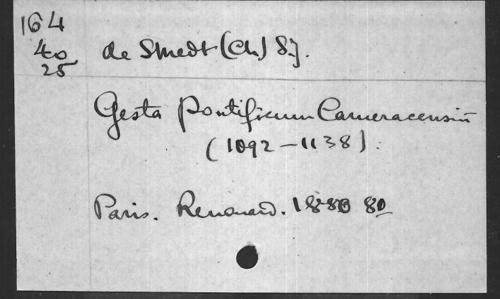 164
40
25
de Smedt (Ch) SJ.
Gesta Pontificum Cameracensium
(1092-1138).
Paris. Renouard. 1880 80